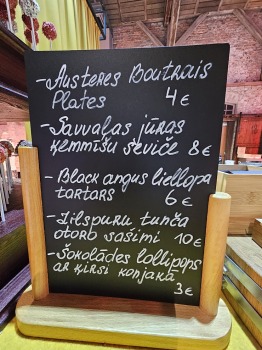 - Austeres Boutrais
Plates 4 €
- Savvaļas jūras
ķemmīšu seviče 8€
- Black angus liellopa
tartars 6 €
- Zilspuru tunča
otoro sašimi 10€
- Šokolādes lollipops
ar ķirsi konjakā
3€